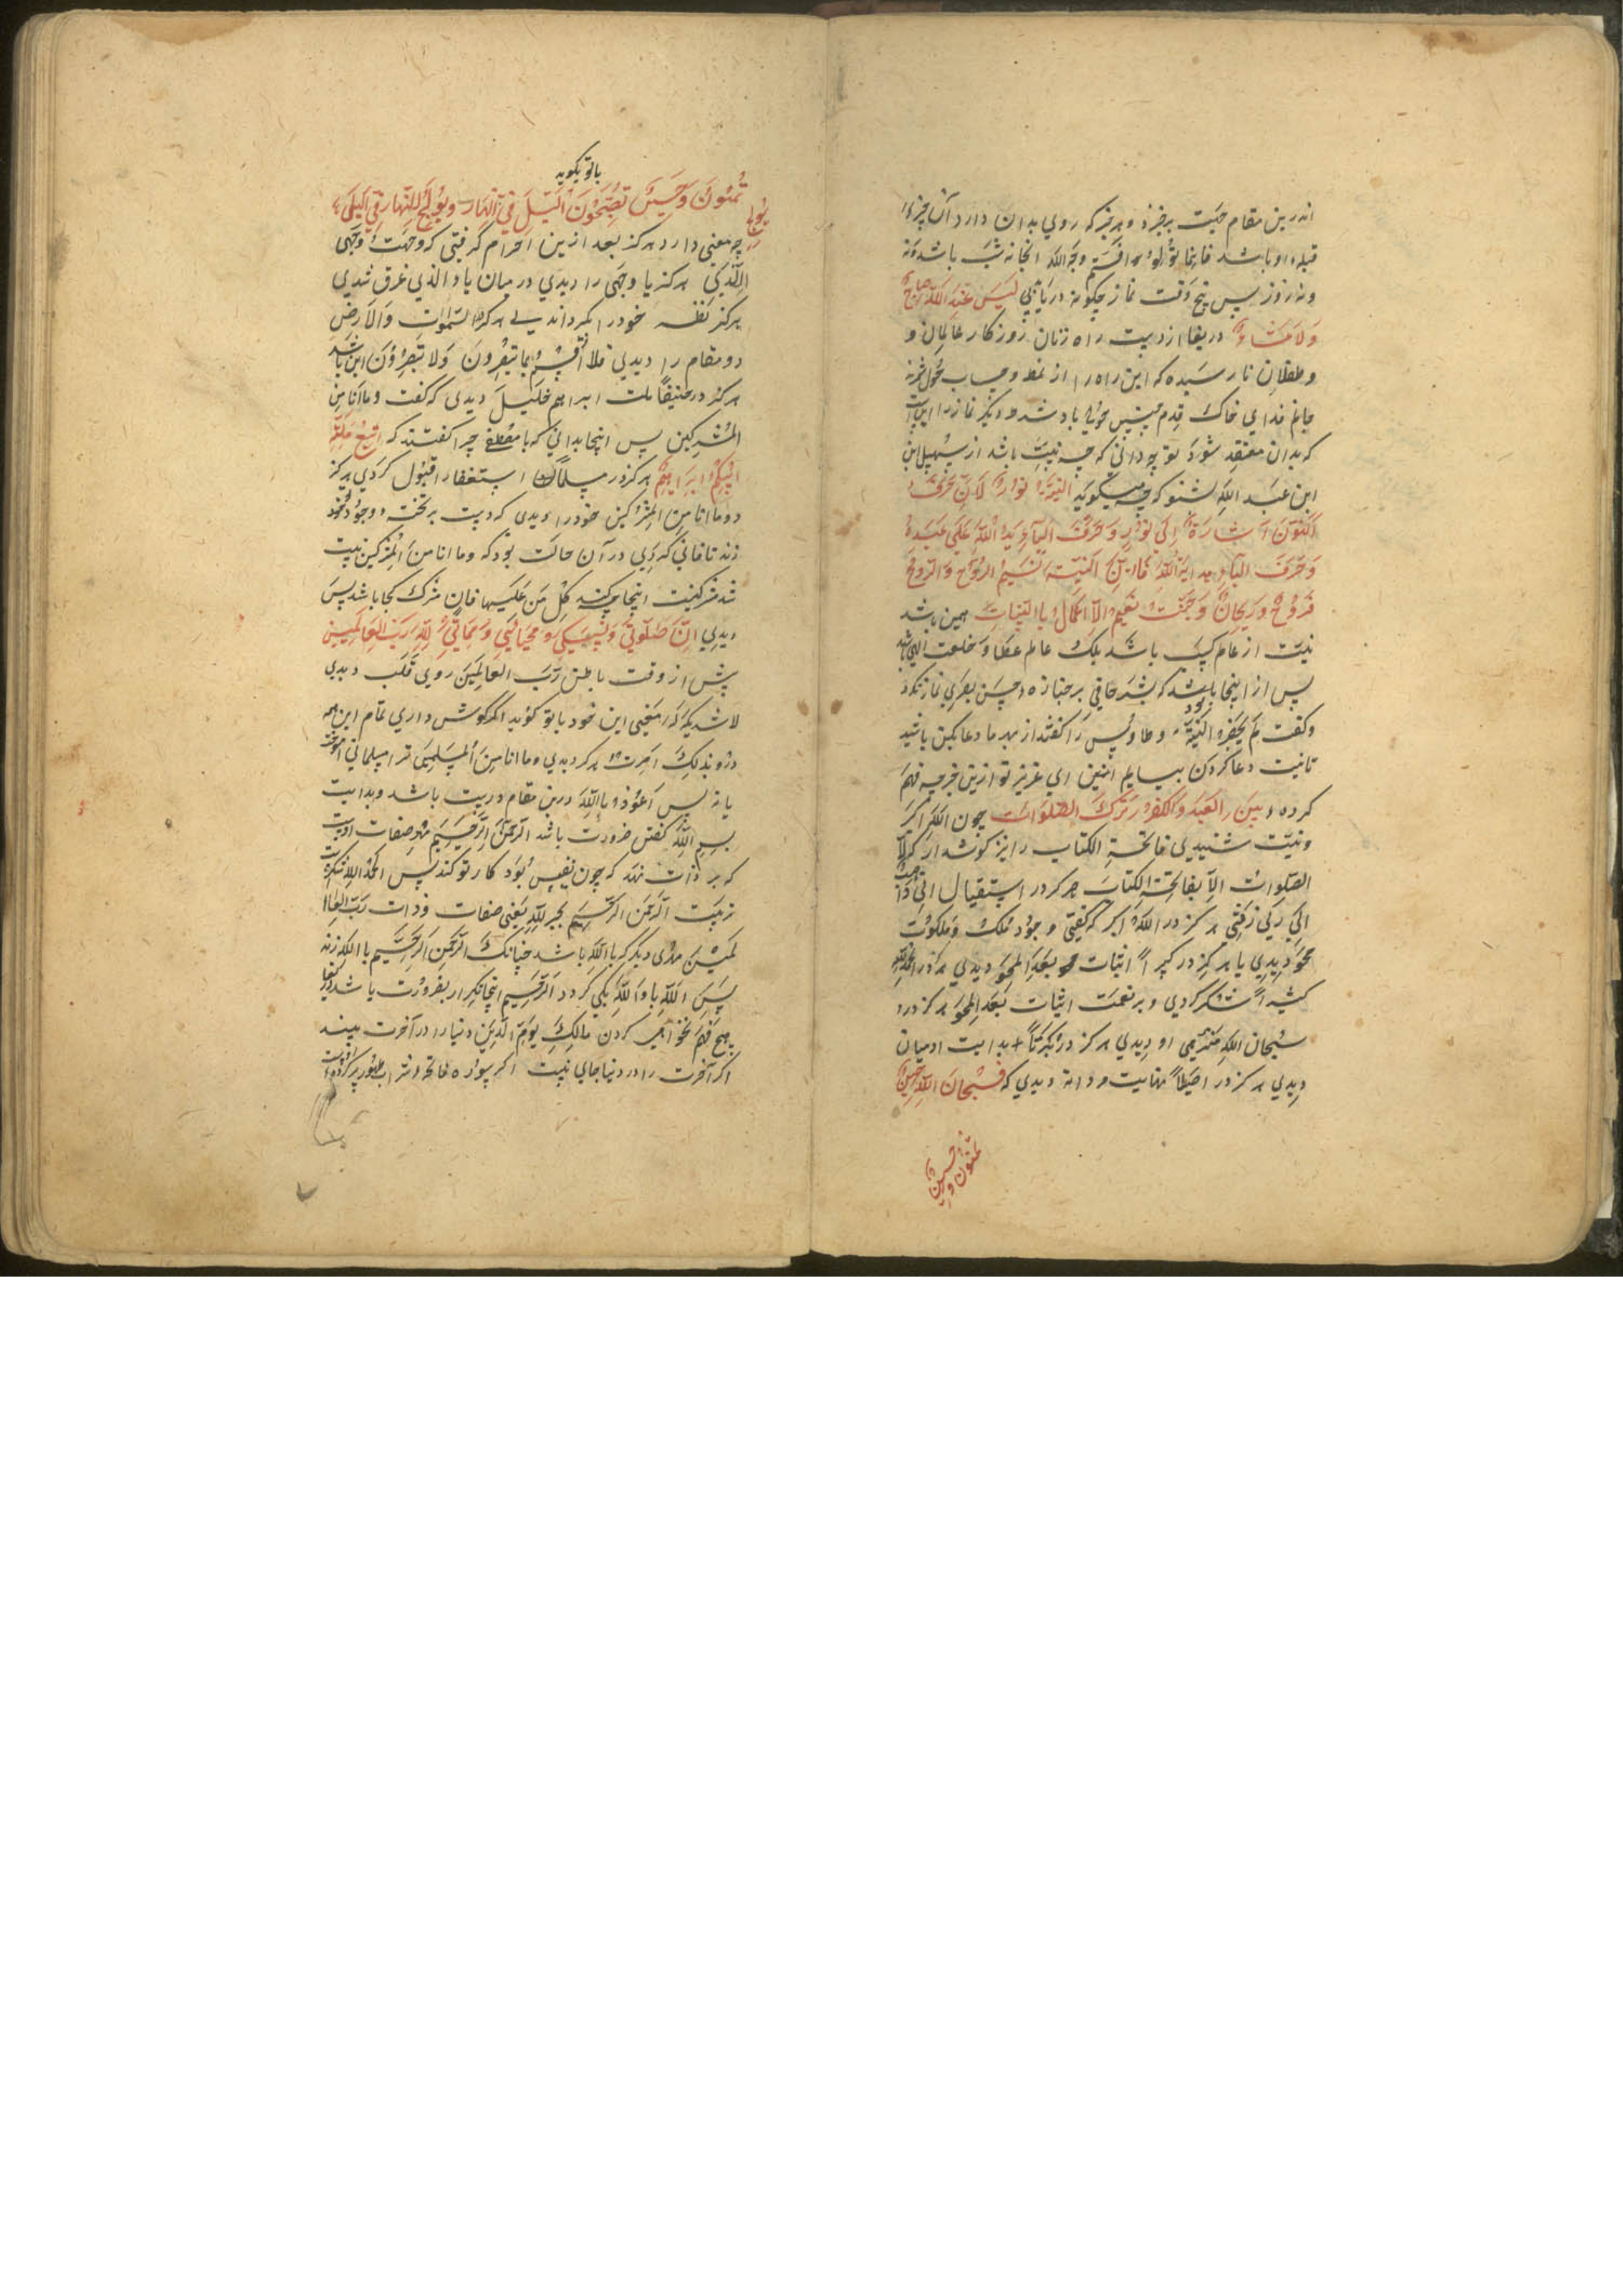 اندرین مقام جهت برخیزد و هرچیز که روی بدان دارد آن چیز
قبله او باشد فاینما تولوا فثم وجه الله انجا نه شب باشد و نه
و نه روز پس پنج وقت نماز چگونه دریابی لیس عند الله صباح
ولا مساء دریغا از دست راه زنان روزکار عالمان و
و طفلان نارسیده که این راه را از نمط و حساب
جانم فدای خاک قدم باد شد و دیگر نماز را
که بدان معتقد شود تو چه دانی که چه نیت باشد از سهیل ابن
ابن عبد الله بشنو که چه میگوید النیة نور لان حرف
النون اشارة الی نور و حرف الیاء ید الله علی عبده
و حرف الهاء هدایة الله فان النیة نسیم الروح والروح
فروح و ریحان و جنت نعیم الاعمال باالنیات همین باشد
نیت از عالم کسب باشد بلک عالم عطا و خلعت الهی باشد
پس از اینجا بود که بشر حافی بر جنازه حسن بصری نماز نکرد
و گفت لم یحضره النیة و طاوس را گفتند از بهر ما دعا کن باشد
تا نیت دعا کردن بیایم ای عزیز تو ازین خبر چه فهم
کرده بین العبد والکفر ترک الصلوات چون الله اکبر
و نیت شنیدی فاتحة الکتاب را نیز گوش دار که لا
الصلوات الا بفاتحة الکتاب هرکز در استقبال انی ذاهب
الی ربی رفتی هرکز در الله اکبر که گفتی وجود ملک و ملکوت
محو دیدی یا هرکز در کبیرا اثبات بعد المحو دیدی هرکز در الحمد لله
کثیرا شکر کردی و بر نعمت اثبات بعد المحو هرکز در
سبحان الله منزهی او دیدی هرکز در بکرتا بدایت ادمیان
دیدی هرکز در اصیلا نهایت مردان دیدی که فسبحان الله حین
تمسون و حین
با تو بگوید
تمسون و حین تصبحون الیل فی النهار و یولج النهار فی الیل
یولج
چه معنی دارد هرکز بعد ازین احرام گرفتی که وجهت وجهی
للذی هرکز یا وجهی را دیدی در میان یاء الذی غرق شدی
هرکز نظر خود را السموات والارض
دو مقام را دیدی فلا اقسم بما تبصرون ولا تبصرون این باشد
هرکز در حنیفا ملت ابراهیم خلیل دیدی که گفت و ما انا من
المشرکین پس اینجا بدانی که با مصطفی چرا گفتند که اتبع ملة
ابیکم ابراهیم هرکز در مسلما استغفار قبول کردی هرکز
در وما انا من المشرکین خود را دیدی که دست بر تخته وجود
زند تا فانی گردی در آن حالت بود که وما انا من المشرکین نیست
شد مشرکیت اینجا چه کند کل من علیها فان شرک کجا باشد پس
دیدی ان صلوتی و نسکی و محیای و مماتی لله رب العالمین
پیش از وقت باطن رب العالمین روی قلب دیدی
لاشریک له معنی این خود با تو گوید اگر گوش داری تمام این همه
در و بذلک امرت هرکز دیدی وما انا من المسلمین ترا مسلمانی
یا نه پس اعوذ و باالله درین مقام درست باشد و بدایت
بسم الله گفتن ضرورت باشد الرحمن الرحیم مهر صفات اوست
که بر ذات نهند که چون نفیس بود کار تو کند پس الحمد لله شکرست
ز نیت الرحمن الرحیم لله یعنی صفات و ذات رب العا
لمین مهری دیگر که باالله باشد چنانک الرحمن الرحیم باالله زند
پس الله با و الله یکی گردد الرحیم اینجا تکرار بضرورت باشد
هیچ فهم نخواهی کردن مالک یوم الدین دنیا را در آخرت بیند
اگر آخرت را در دنیا جای نیست اگر سوره فاتحه شراب طهور